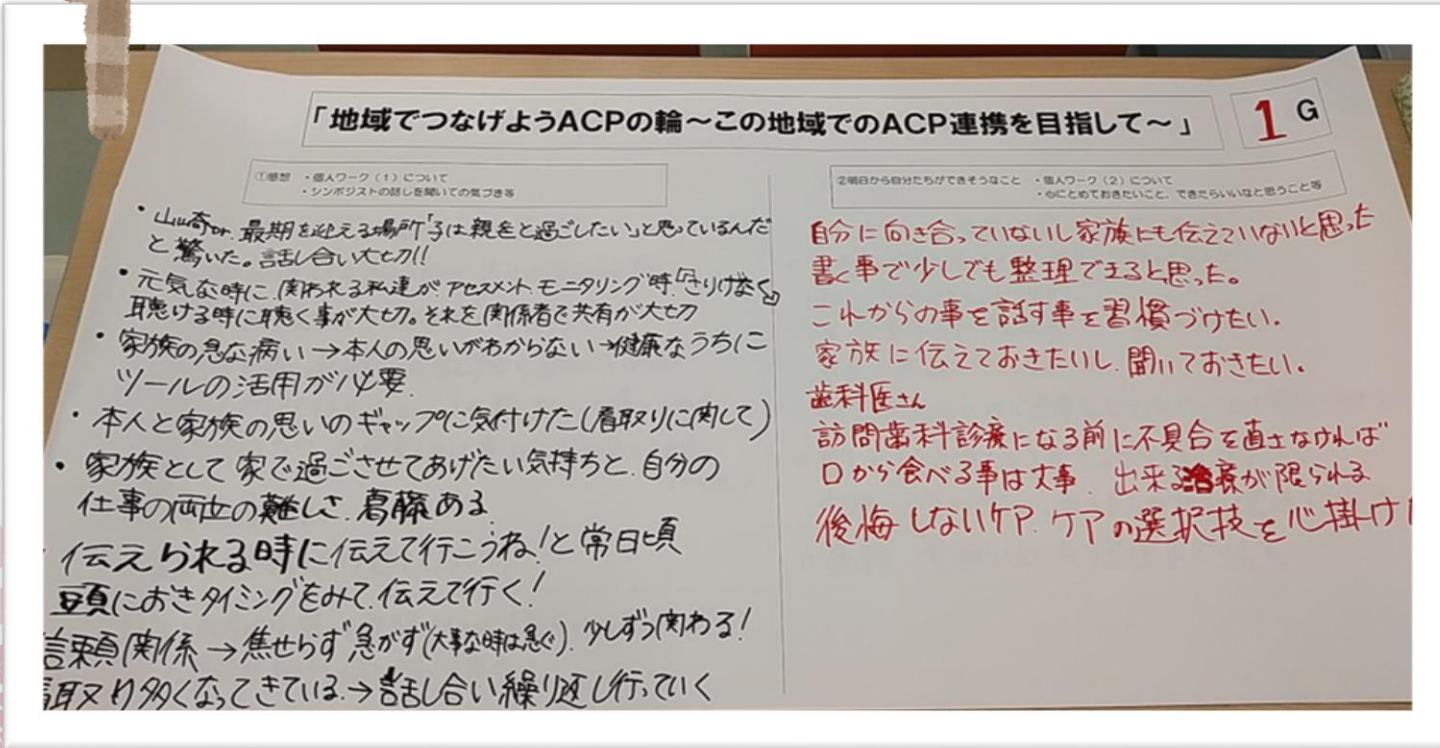 「地域でつなげようACPの輪～この地域でのACP連携を目指して～」
1 G
①感想 ・個人ワーク（1）について
・シンポジストの話しを聞いての気づき等
・山崎Dr. 最期を迎える場所「子は親をと過ごしたい」と思っているんだ
と驚いた。話し合い大切!!
・元気な時に、関われる私達が、アセスメント、モニタリング時、『さりげなく』
聴ける時に聴く事が大切。それを関係者で共有が大切
・家族の急な病い→本人の思いがわからない→健康なうちに
ツールの活用が必要.
・本人と家族の思いのギャップに気付けた(看取りに関して)
・家族として家で過ごさせてあげたい気持ちと、自分の
仕事の両立の難しさ、葛藤ある
伝えられる時に伝えて行こうね!と常日頃
頭におきタイミングをみて、伝えて行く!
信頼関係→焦せらず急がず(大事な時は急ぐ)、少しずつ関わる!
看取り多くなってきている.→話し合い繰り返し行っていく
②明日から自分たちができそうなこと ・個人ワーク（2）について
・心にとめておきたいこと、できたらいいなと思うこと等
自分に向き合っていないし家族にも伝えていないと思った
書く事で少しでも整理できると思った。
これからの事を話す事を習慣づけたい.
家族に伝えておきたいし、聞いておきたい。
歯科医さん
訪問歯科診療になる前に不具合を直さなければ
口から食べる事は大事、出来る治療が限られる
後悔しないケア、ケアの選択技を心掛け